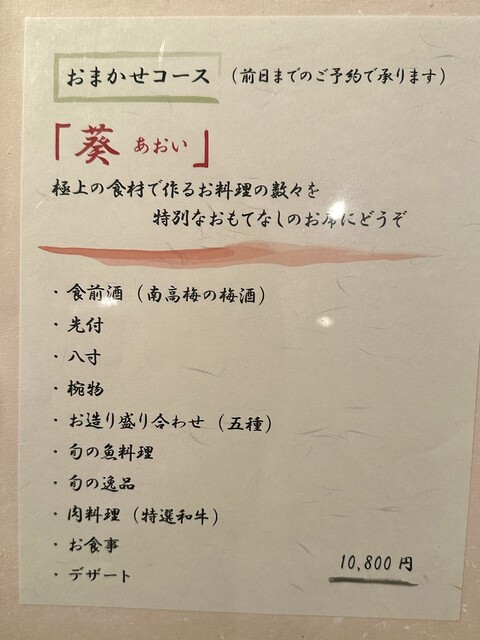 おまかせコース (前日までのご予約で承ります)
「葵 あおい」
極上の食材で作るお料理の数々を
特別なおもてなしのお席にどうぞ
・食前酒 (南高梅の梅酒)
・先付
・八寸
・椀物
・お造り盛り合わせ (五種)
・旬の魚料理
・旬の逸品
・肉料理 (特選和牛)
・お食事
・デザート
10,800円